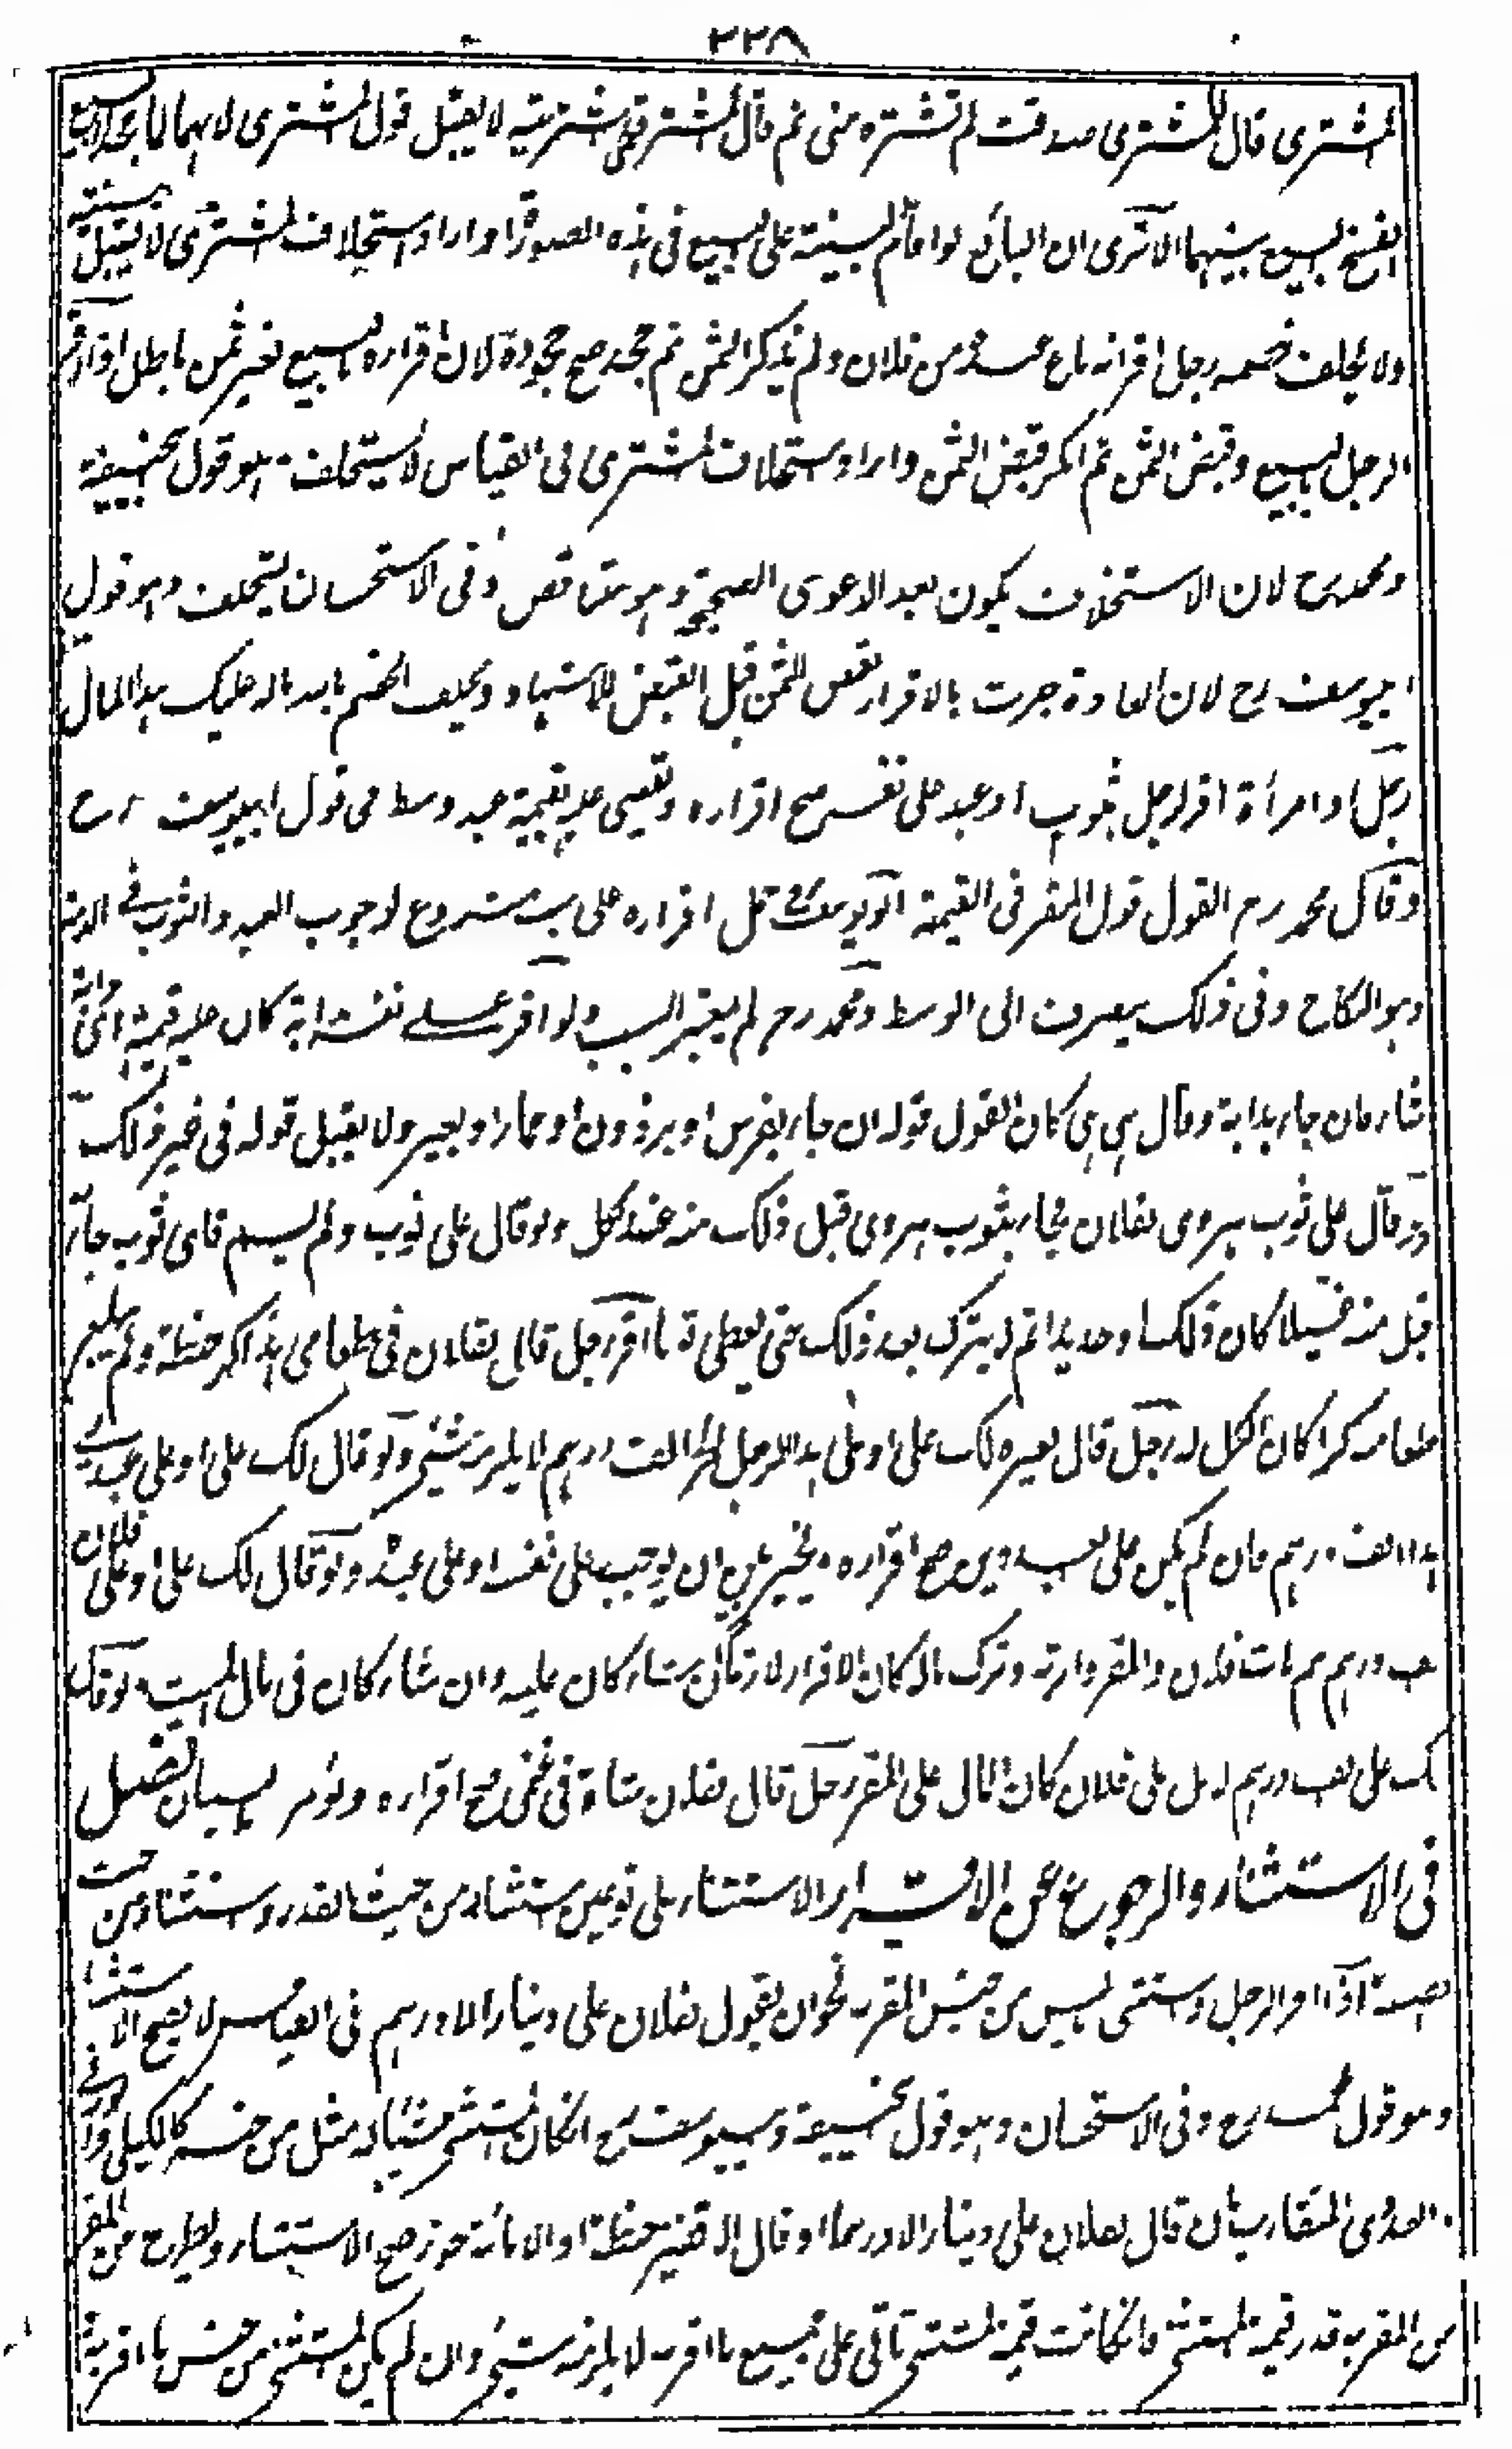 ٢٢٨
المشترى قال المشترى صدقت لم تشتره منى ثم قال المشترى قد اشتريته لا يقبل قول المشترى لانهما لما تجاحدا البيع
انفسخ البيع بينهما الا ترى ان البائع لو اقام البينة على البيع فى هذه الصورة او اراد استحلاف المشترى لا تقبل بينته
ولا يحلف خصمه رجل اقر انه باع عبده من فلان ولم يذكر الثمن ثم جحد صح جحوده لان اقراره بالبيع بغير ثمن باطل اذا اقر
الرجل بالبيع وقبض الثمن ثم انكر قبض الثمن واراد استحلاف المشترى فى القياس لا يستحلف وهو قول ابى حنيفة
ومحمد رح لان الاستحلاف يكون بعد الدعوى الصحيحة وهو متناقض وفى الاستحسان يستحلف وهو قول
ابى يوسف رح لان العادة جرت بالاقرار بقبض الثمن قبل القبض للاشهاد ويحلف الخصم بالله ماله عليك هذا المال
رجل او امرأة اقر لرجل بثوب او عبد على نفسه صح اقراره ويقضى عليه بقيمة عبد وسط فى قول ابى يوسف رح
وقال محمد رح القول قول المقر فى القيمة ابو يوسف رح حمل اقراره على سبب مشروع لوجوب العبد والثوب فى الذمة
وهو النكاح وفى ذلك يصرف الى الوسط ومحمد رح لم يعتبر السبب ولو اقر على نفسه انه كان عليه قيمة
شاء فان جاء بدابة وقال هى هى كان القول قوله ان جاء بفرس او برذون او حمار او بعير ولا يقبل قوله فى غير ذلك
ولو قال على ثوب هروى لفلان فجاء بثوب هروى قبل ذلك منه عند الكل ولو قال على ثوب ولم يسم فاى ثوب جاء به
قبل منه غسيلا كان ذلك او جديدا ثم لم يترك بعد ذلك حتى يعطى ما اقر رجل قال لفلان فى طعامى هذا كر حنطة ولم يبلغ
طعامه كرا كان الكل له رجل قال لغيره لك على او على هذا الرجل الف درهم لا يلزمه شئ ولو قال لك على او على عبدى
هذا الف درهم فان لم يكن على العبد دين صح اقراره ويخير بين ان يوجب على نفسه او على عبده ولو قال لك على او على فلان
الف درهم ثم مات فلان والمقر وارثه وترك مالا كان الاقرار لازما ان شاء كان عليه وان شاء كان فى مال الميت ولو قال
لك على الف درهم لا بل على فلان كان المال على المقر رجل قال لفلان شاة فى غنمى صح اقراره ويؤمر بالبيان فصل
فى الاستثناء والرجوع عن الاقرار الاستثناء على نوعين استثناء من حيث القدر واستثناء من حيث
الصفة اذا اقر الرجل واستثنى ما ليس من جنس المقر به نحو ان يقول لفلان على دينار الا درهم فى القياس لا يصح الاستثناء
وهو قول محمد رح وفى الاستحسان وهو قول ابى حنيفة وابى يوسف رح ان كان المستثنى مما له مثل من جنسه كالكيلى والوزنى
والعددى المتقارب بان قال لفلان على دينار الا درهما او قال الا قفيز حنطة او الا مائة جوز صح الاستثناء ويطرح عن المقر
من المقر به قدر قيمة المستثنى فان كانت قيمة المستثنى تاتى على جميع ما اقر به لا يلزمه شئ وان لم يكن المستثنى من جنس ما اقر به